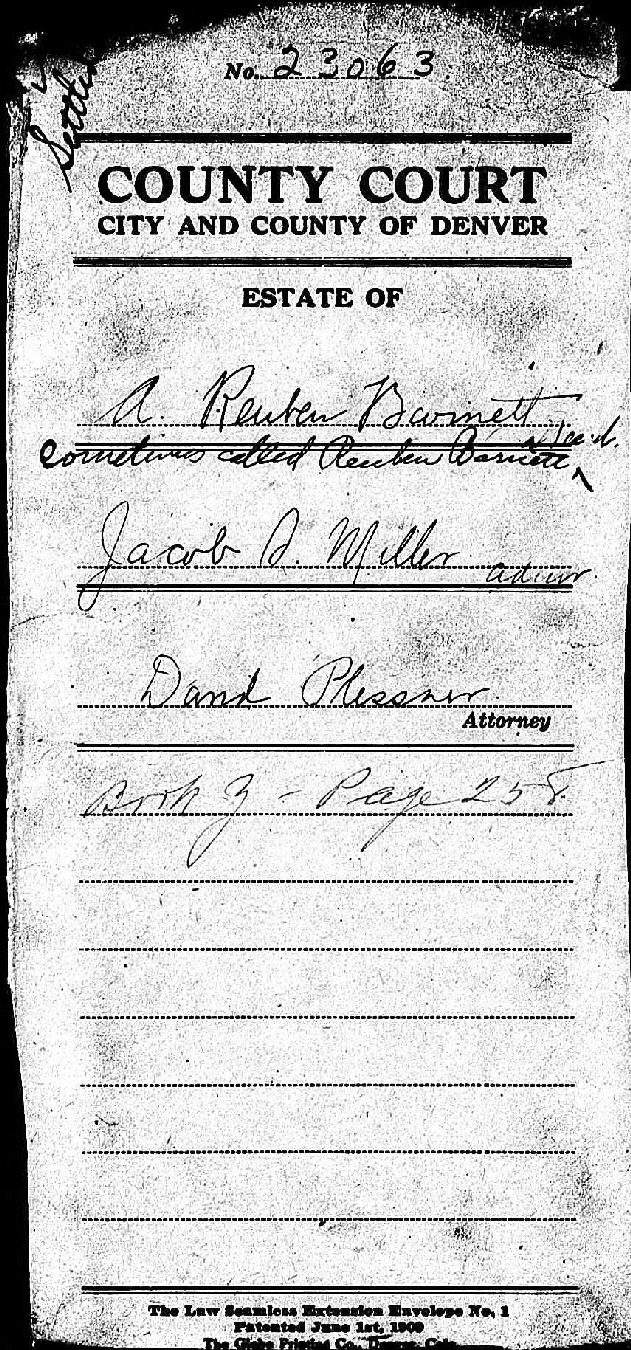 No. 23063
COUNTY COURT
CITY AND COUNTY OF DENVER
ESTATE OF
A. Reuben Barnett, dec'd.
sometimes called Reuben Barnett,
Jacob S. Miller admr.
David Plessner.
Attorney
Book 3 - Page 258.
The Law Seamless Extension Envelope No. 1
Patented June 1st, 1909
The Globe Printing Co., Denver, Colo.